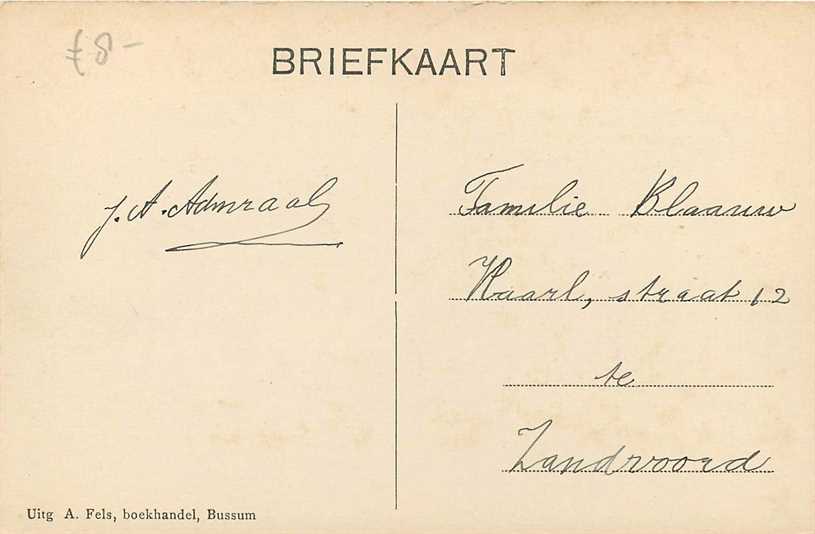 £8-
BRIEFKAART
J. A. Admraal
Familie Blaauw
Haarl, straat 12
te
Zandvoord
Uitg A. Fels, boekhandel, Bussum